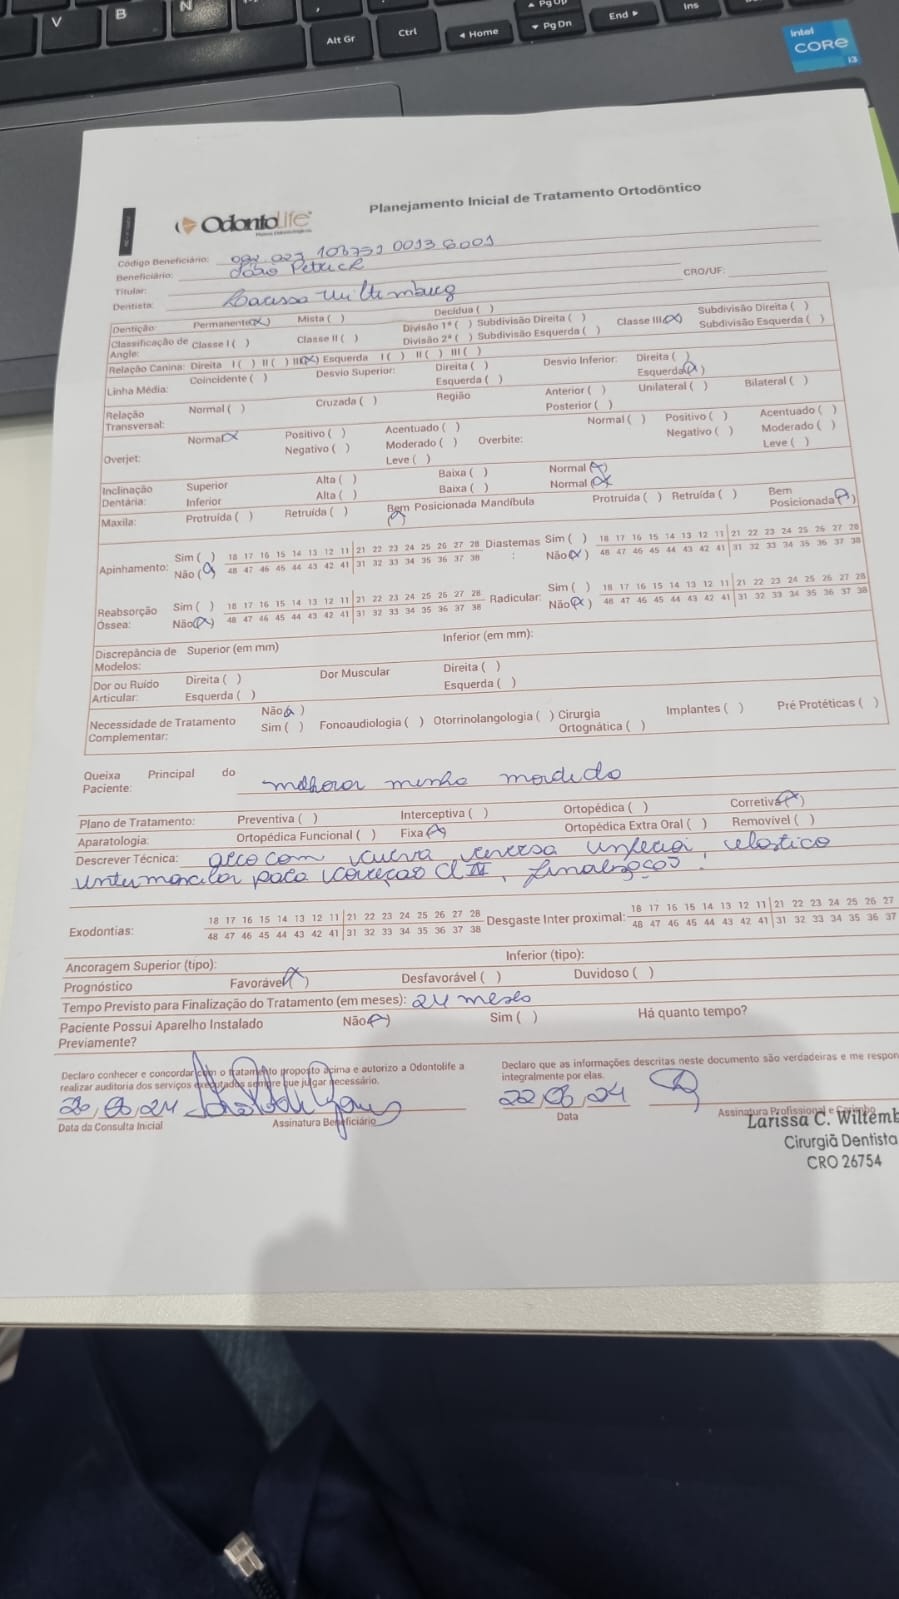 V
B
N
,
Alt Gr
Ctrl
◄ Home
▲ PgUp
▼ PgDn
End ►
Ins
intel
CORE
i3
OdontoLife
Planejamento Inicial de Tratamento Ortodôntico
Código Beneficiário:
Beneficiário: João Petrick
Titular: CRO/UF:
Dentista: Larissa Wiltemburg
Dentição: Permanente(x) Mista ( ) Decídua ( )
Classificação de Angle: Classe I ( ) Classe II ( ) Divisão 1ª ( ) Subdivisão Direita ( ) Classe III(x) Subdivisão Direita ( )
Divisão 2ª ( ) Subdivisão Esquerda ( ) Subdivisão Esquerda ( )
Relação Canina: Direita I ( ) II ( ) III(x) Esquerda I ( ) II ( ) III ( )
Linha Média: Coincidente ( ) Desvio Superior: Direita ( ) Desvio Inferior: Direita ( )
Esquerda ( ) Esquerda(x)
Relação Transversal: Normal ( ) Cruzada ( ) Região Anterior ( ) Unilateral ( ) Bilateral ( )
Posterior ( )
Overjet: Normal x Positivo ( ) Acentuado ( ) Overbite: Normal ( ) Positivo ( ) Acentuado ( )
Negativo ( ) Moderado ( ) Negativo ( ) Moderado ( )
Leve ( ) Leve ( )
Inclinação Dentária: Superior Alta ( ) Baixa ( ) Normal (x)
Inferior Alta ( ) Baixa ( ) Normal (x)
Maxila: Protruída ( ) Retruída ( ) Bem Posicionada Mandíbula Protruída ( ) Retruída ( ) Bem Posicionada(x)
Apinhamento: Sim ( ) 18 17 16 15 14 13 12 11 21 22 23 24 25 26 27 28 Diastemas: Sim ( ) 18 17 16 15 14 13 12 11 21 22 23 24 25 26 27 28
Não (x) 48 47 46 45 44 43 42 41 31 32 33 34 35 36 37 38 Não(x) 48 47 46 45 44 43 42 41 31 32 33 34 35 36 37 38
Reabsorção Óssea: Sim ( ) 18 17 16 15 14 13 12 11 21 22 23 24 25 26 27 28 Radicular: Sim ( ) 18 17 16 15 14 13 12 11 21 22 23 24 25 26 27 28
Não(x) 48 47 46 45 44 43 42 41 31 32 33 34 35 36 37 38 Não(x) 48 47 46 45 44 43 42 41 31 32 33 34 35 36 37 38
Discrepância de Modelos: Superior (em mm) Inferior (em mm):
Dor ou Ruído Articular: Direita ( ) Dor Muscular Direita ( )
Esquerda ( ) Esquerda ( )
Necessidade de Tratamento Complementar: Não(x)
Sim ( ) Fonoaudiologia ( ) Otorrinolangologia ( ) Cirurgia Ortognática ( ) Implantes ( ) Pré Protéticas ( )
Queixa Principal do Paciente: melhorar minha mordida
Plano de Tratamento: Preventiva ( ) Interceptiva ( ) Ortopédica ( ) Corretiva(x)
Aparatologia: Ortopédica Funcional ( ) Fixa(x) Ortopédica Extra Oral ( ) Removível ( )
Descrever Técnica: arco com curva reversa inferior, elastico
intermaxilar para correção Cl III, finalizações.
Exodontias: 18 17 16 15 14 13 12 11 21 22 23 24 25 26 27 28 Desgaste Inter proximal: 18 17 16 15 14 13 12 11 21 22 23 24 25 26 27
48 47 46 45 44 43 42 41 31 32 33 34 35 36 37 38 48 47 46 45 44 43 42 41 31 32 33 34 35 36 37
Ancoragem Superior (tipo): Inferior (tipo):
Prognóstico Favorável(x) Desfavorável ( ) Duvidoso ( )
Tempo Previsto para Finalização do Tratamento (em meses): 24 meses
Paciente Possui Aparelho Instalado Previamente? Não(x) Sim ( ) Há quanto tempo?
Declaro conhecer e concordar com o tratamento proposto acima e autorizo a Odontolife a
realizar auditoria dos serviços executados sempre que julgar necessário.
Data da Consulta Inicial Assinatura Beneficiário
Declaro que as informações descritas neste documento são verdadeiras e me respon
integralmente por elas.
Data Assinatura Profissional e Carimbo
Larissa C. Wiltemb
Cirurgiã Dentista
CRO 26754